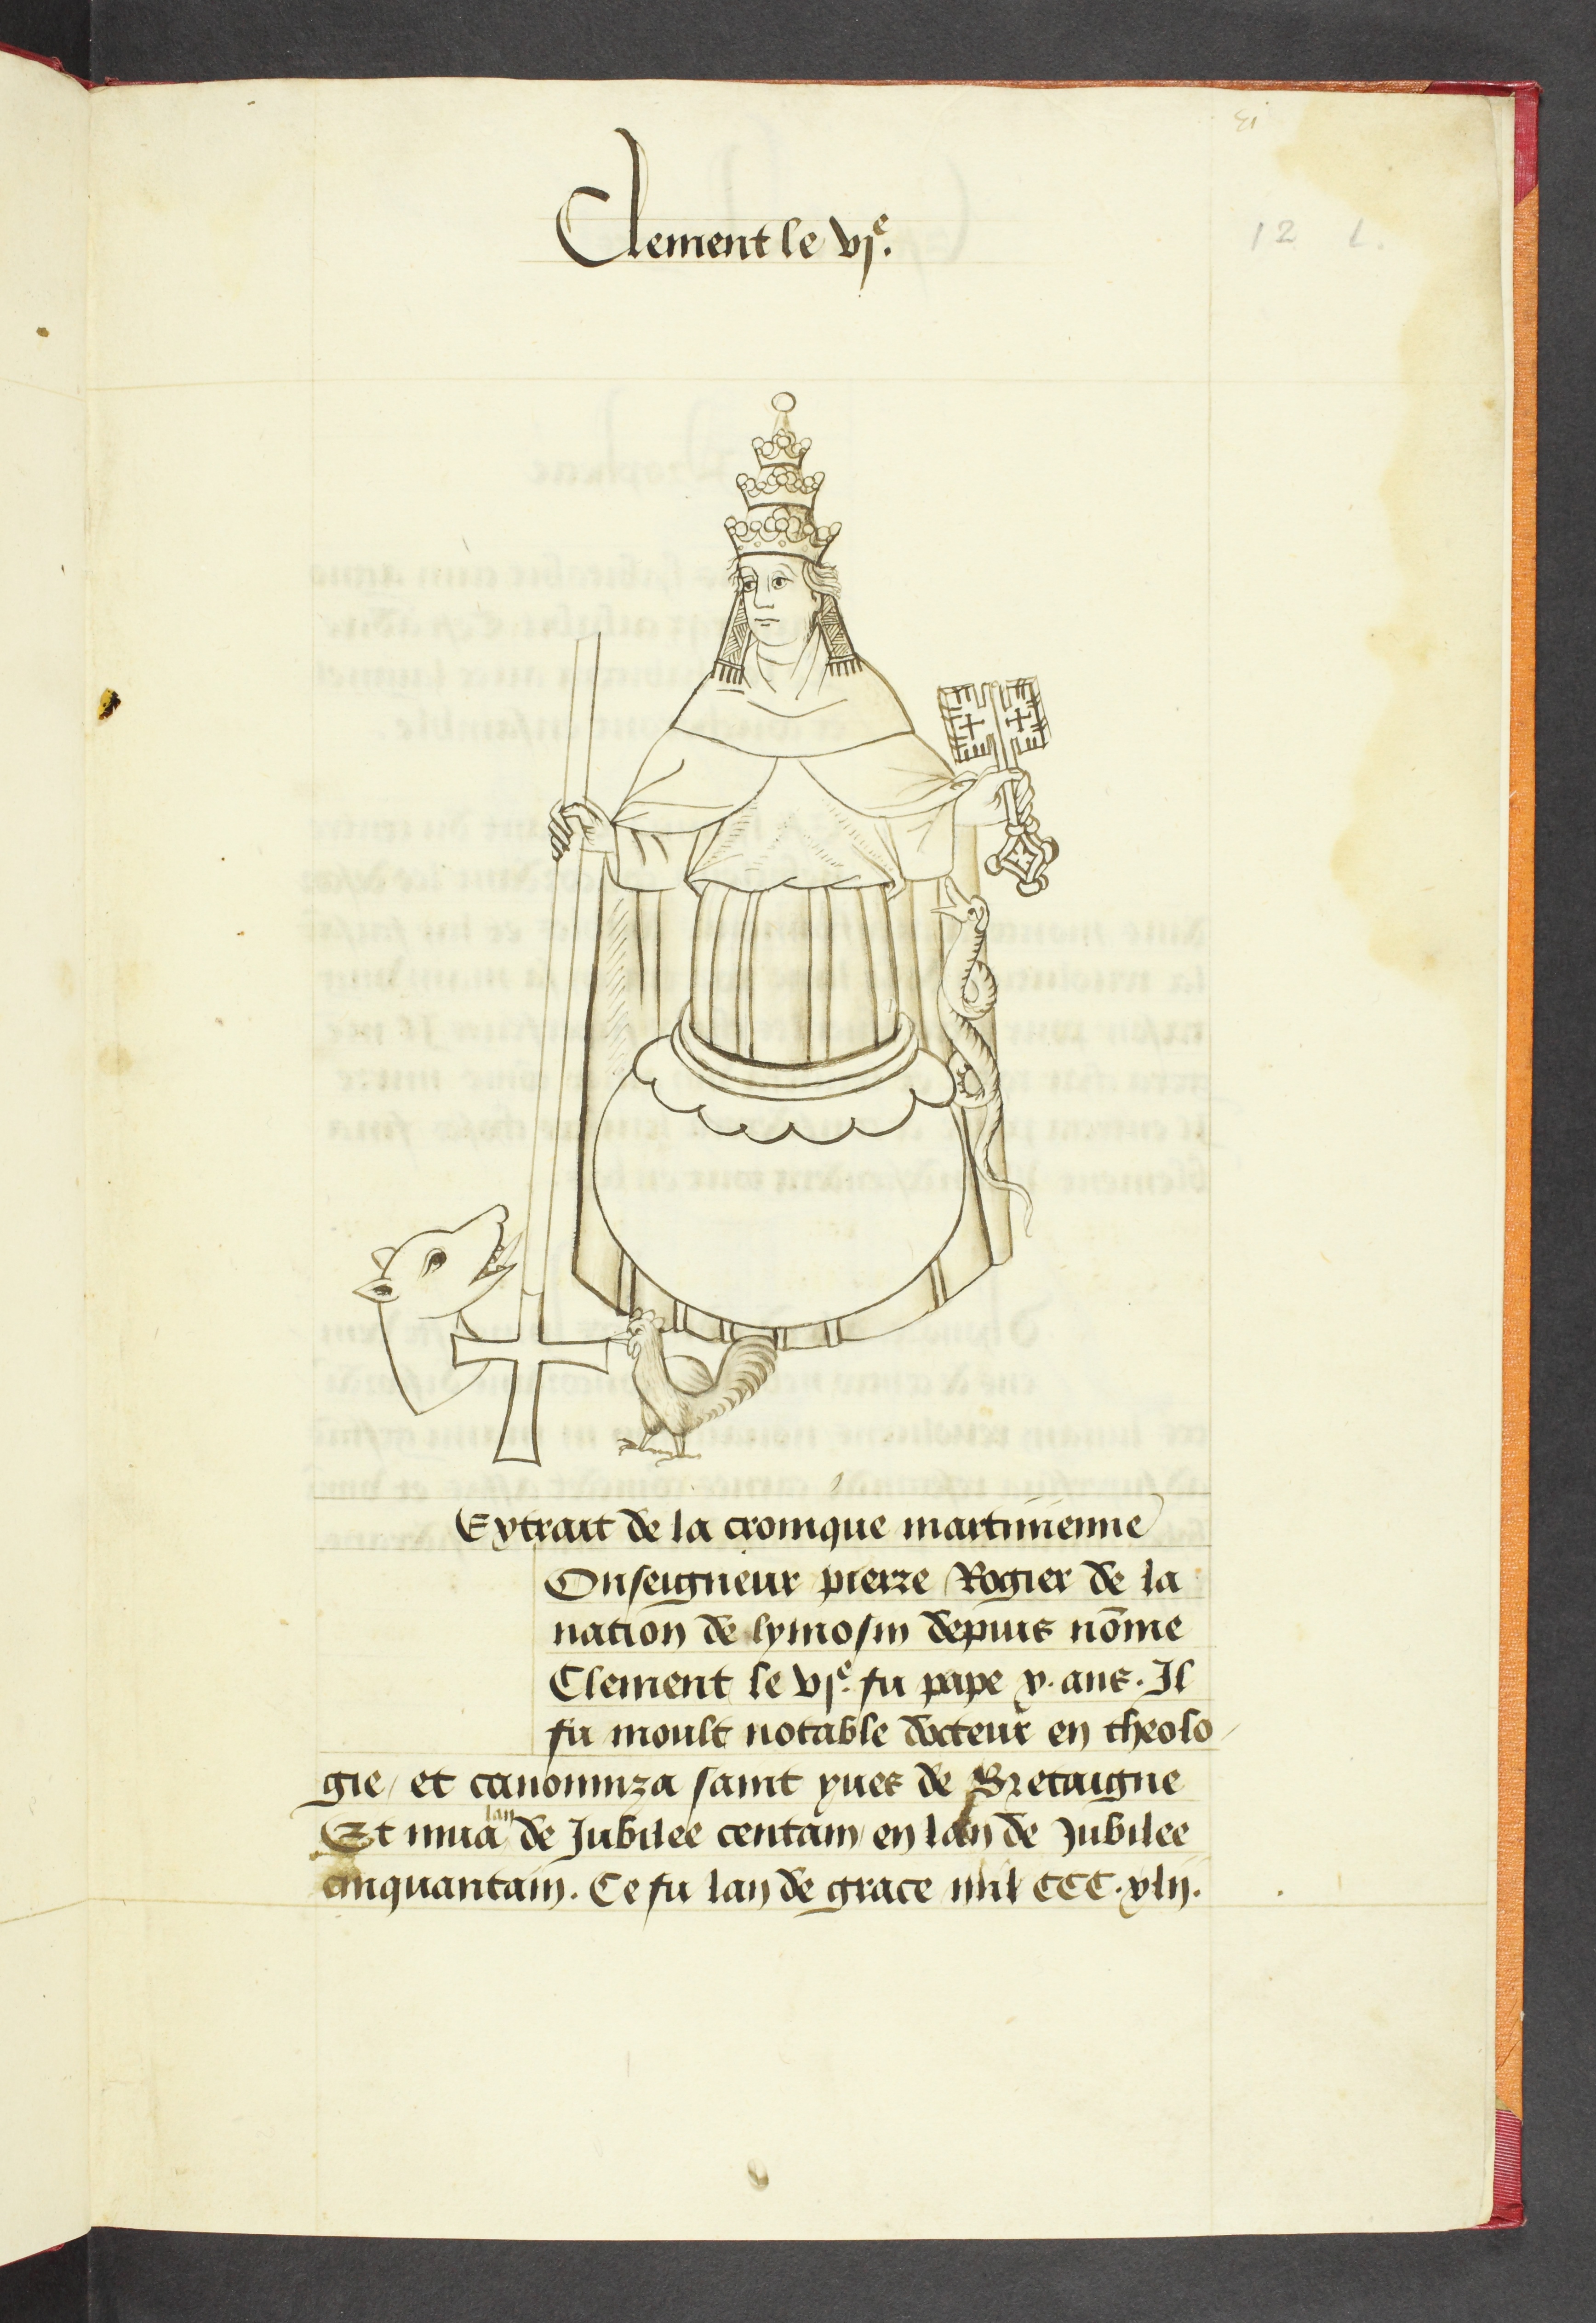 12 l.
Clement le vje.
Extrait de la cronique martinienne
Onseigneur pierre Rogier de la
nation de lymosin depuis nōme
Clement le vje. fu pape x. ans. Il
fu moult notable docteur en theolo
gie / et canoniuza saint yues de Bretaigne
Et mua lan de Jubilee centain en lan de Jubilee
cinquantain. Ce fu lan de grace mil CCC. xlij.